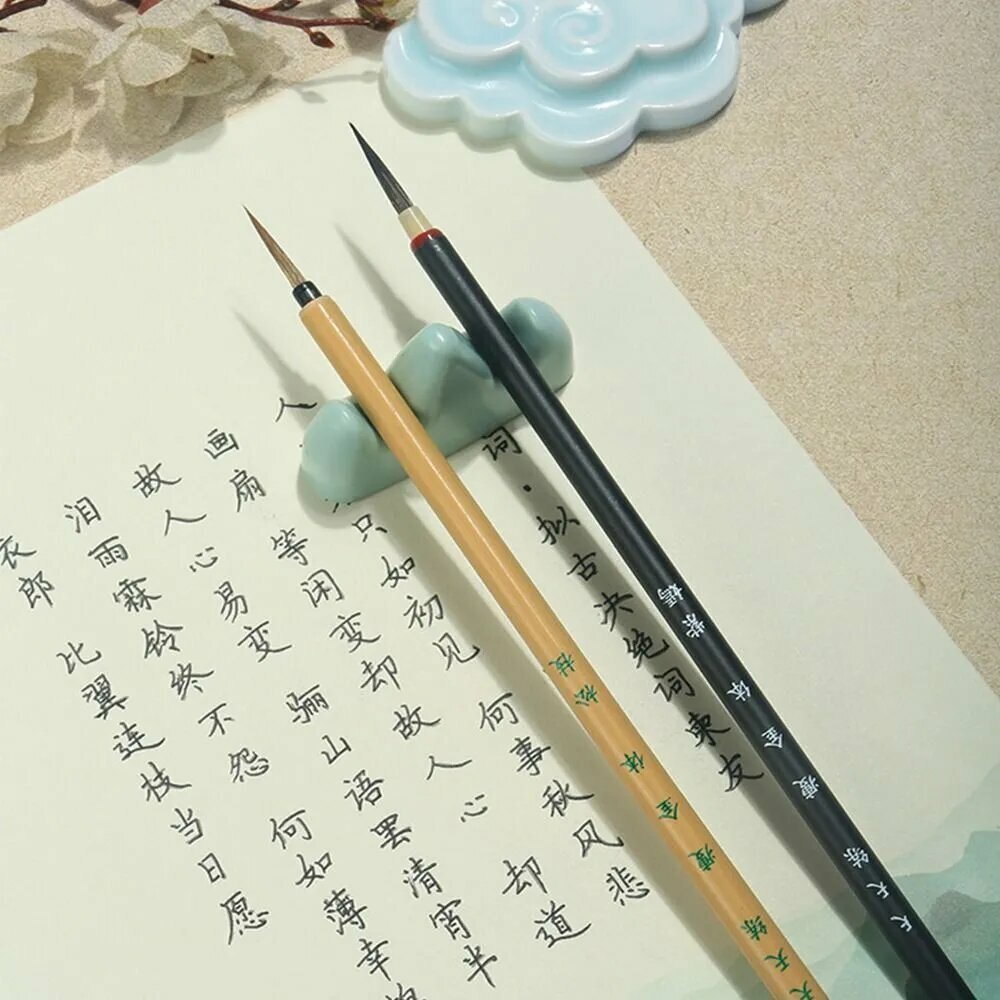 词·拟古决绝词柬友
人 只如初见 何事秋风悲
画扇 等闲变却故人心 却道
故人心易变 骊山语罢清宵半
泪雨霖铃终不怨 何如薄幸
衣郎 比翼连枝当日愿
天天练 瘦金体 紫嫣
天天练 瘦金体 松枝